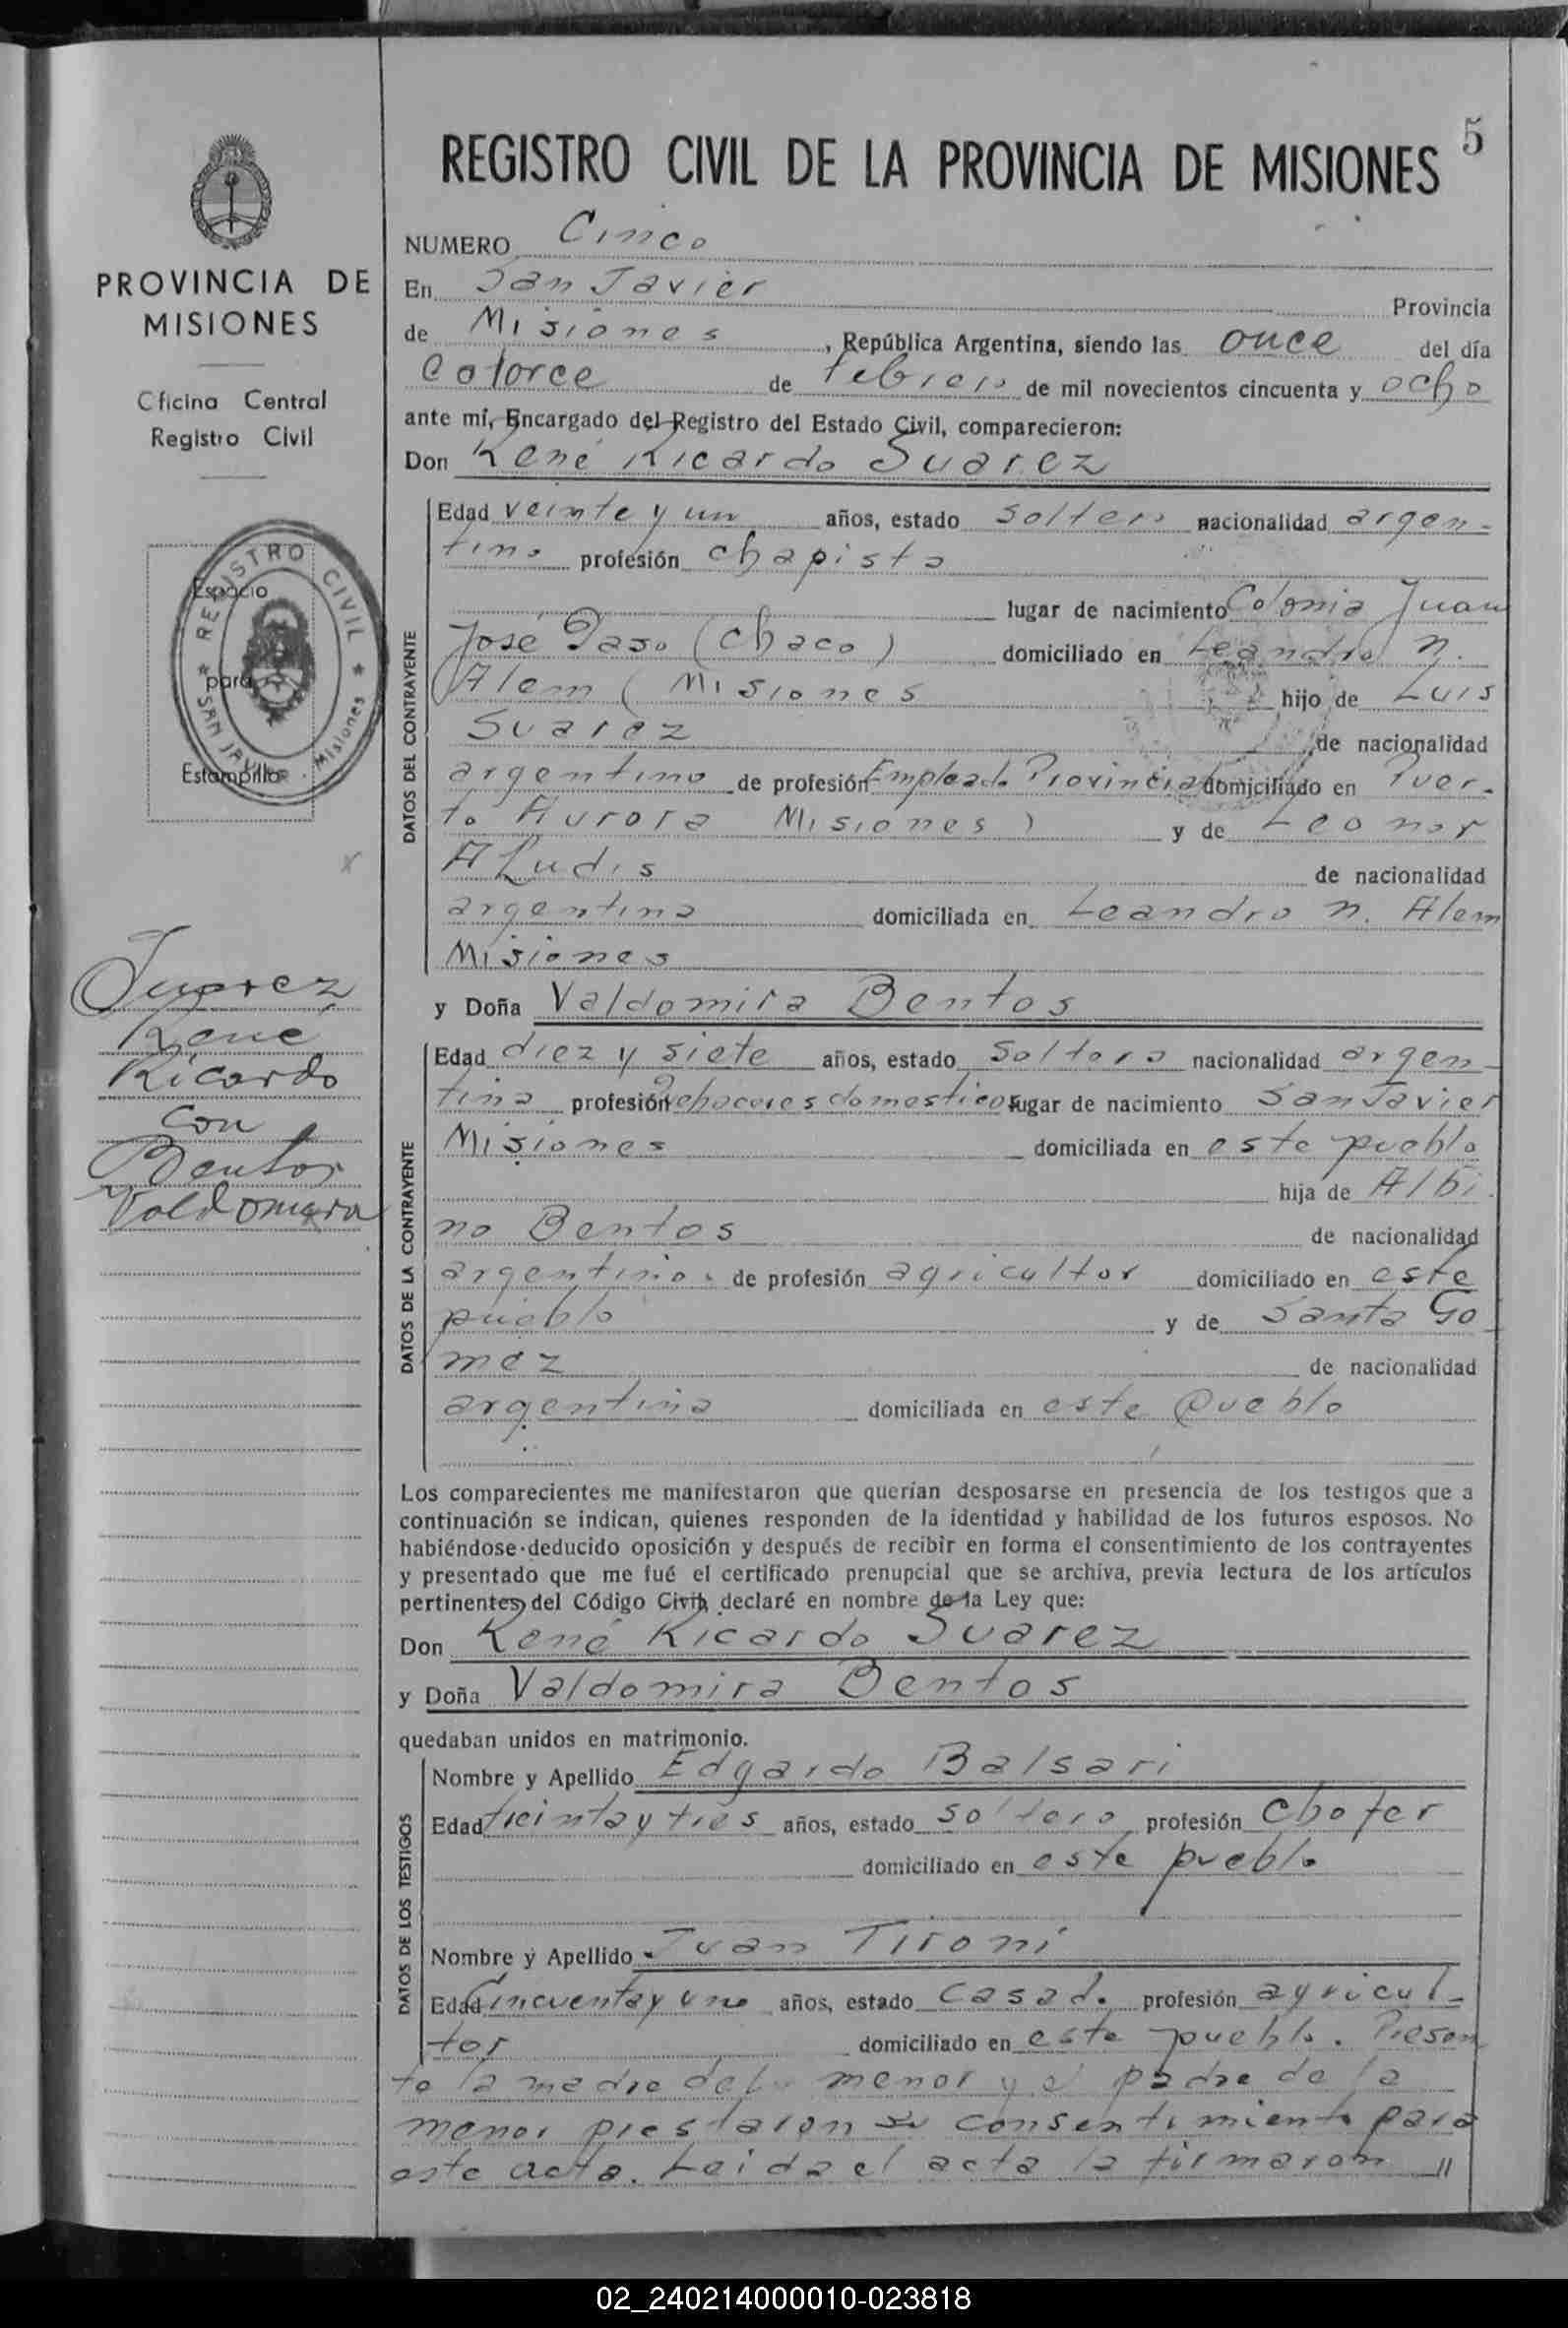 5
REGISTRO CIVIL DE LA PROVINCIA DE MISIONES
PROVINCIA DE
MISIONES
Oficina Central
Registro Civil
REGISTRO CIVIL
SAN JAVIER - Misiones
Espacio
para
Estampilla
Suarez
René
Ricardo
con
Bentos
Valdomira
NUMERO Cinco
En San Javier Provincia
de Misiones, República Argentina, siendo las once del día
Catorce de febrero de mil novecientos cincuenta y ocho
ante mí, Encargado del Registro del Estado Civil, comparecieron:
Don René Ricardo Suarez
DATOS DEL CONTRAYENTE
Edad veinte y un años, estado soltero nacionalidad argen-
tino profesión chapista
lugar de nacimiento Colonia Juan
José Paso (Chaco) domiciliado en Leandro N.
Alem (Misiones hijo de Luis
Suarez de nacionalidad
argentino de profesión Empleado Provincial domiciliado en Puer-
to Aurora Misiones) y de Leonor
A Ludis de nacionalidad
argentina domiciliada en Leandro N. Alem
Misiones
y Doña Valdomira Bentos
DATOS DE LA CONTRAYENTE
Edad diez y siete años, estado Soltera nacionalidad argen-
tina profesión Quehaceres domesticos lugar de nacimiento San Javier
Misiones domiciliada en este pueblo
hija de Albi
no Bentos de nacionalidad
argentino de profesión agricultor domiciliado en este
pueblo y de Santa Go
mez de nacionalidad
argentina domiciliada en este Pueblo
Los comparecientes me manifestaron que querían desposarse en presencia de los testigos que a
continuación se indican, quienes responden de la identidad y habilidad de los futuros esposos. No
habiéndose deducido oposición y después de recibir en forma el consentimiento de los contrayentes
y presentado que me fué el certificado prenupcial que se archiva, previa lectura de los artículos
pertinentes del Código Civil, declaré en nombre de la Ley que:
Don René Ricardo Suarez
y Doña Valdomira Bentos
quedaban unidos en matrimonio.
DATOS DE LOS TESTIGOS
Nombre y Apellido Edgardo Balsari
Edad treinta y tres años, estado soltero profesión Chofer
domiciliado en este pueblo
Nombre y Apellido Juan Tironi
Edad Cincuenta y uno años, estado Casado profesión agricul-
tor domiciliado en este pueblo. Presen
te la madre del menor y el padre de la
menor prestaron su consentimiento para
este acto. Leida el acta la firmaron //
02_240214000010-023818